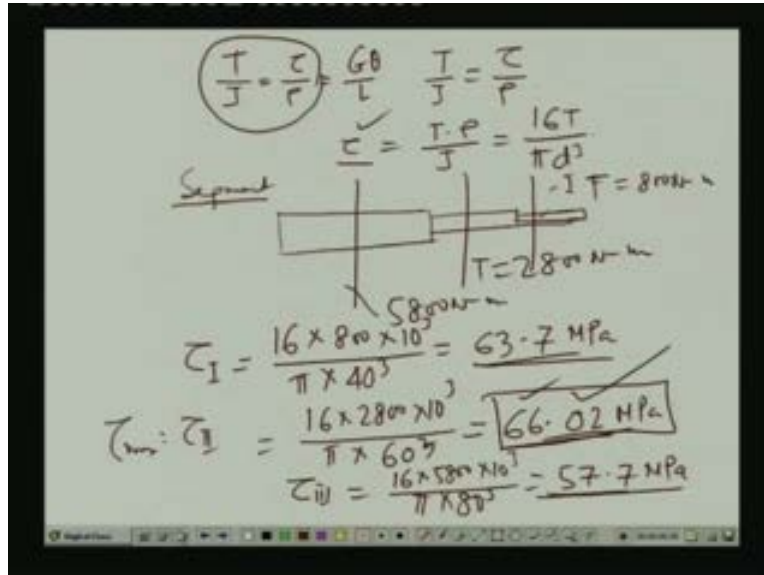 T/J = τ/ρ = Gθ/L   T/J = τ/ρ
τ = T·ρ/J = 16T/πd³
Segment
I T = 800 N-m
T = 2800 N-m
5800 N-m
τ_I = 16 × 800 × 10³ / π × 40³ = 63.7 MPa
τ_max : τ_II = 16 × 2800 × 10³ / π × 60³ = 66.02 MPa
τ_iii = 16 × 5800 × 10³ / π × 80³ = 57.7 MPa